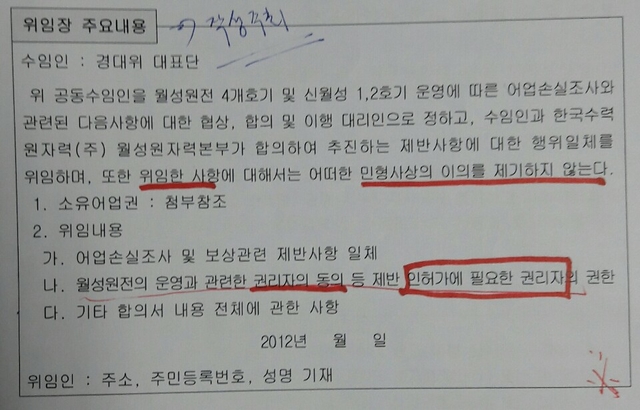 위임장 주요내용 → 작성주최
수임인 : 경대위 대표단
위 공동수임인을 월성원전 4개호기 및 신월성 1,2호기 운영에 따른 어업손실조사와
관련된 다음사항에 대한 협상, 합의 및 이행 대리인으로 정하고, 수임인과 한국수력
원자력(주) 월성원자력본부가 합의하여 추진하는 제반사항에 대한 행위일체를
위임하며, 또한 위임한 사항에 대해서는 어떠한 민형사상의 이의를 제기하지 않는다.
1. 소유어업권 : 첨부참조
2. 위임내용
가. 어업손실조사 및 보상관련 제반사항 일체
나. 월성원전의 운영과 관련한 권리자의 동의 등 제반 인허가에 필요한 권리자의 권한
다. 기타 합의서 내용 전체에 관한 사항
2012년 월 일
위임인 : 주소, 주민등록번호, 성명 기재